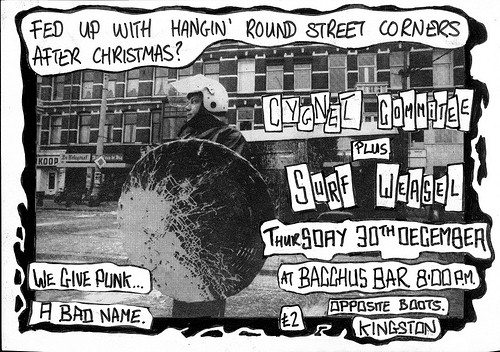 FED UP WITH HANGIN' ROUND STREET CORNERS
AFTER CHRISTMAS?
CYGNEL COMMITEE
PLUS
SURF WEASEL
THURSDAY 30TH DECEMBER
AT BACCHUS BAR 8:00 P.M.
OPPOSITE BOOTS.
KINGSTON
£2
WE GIVE PUNK...
A BAD NAME.
KOOP